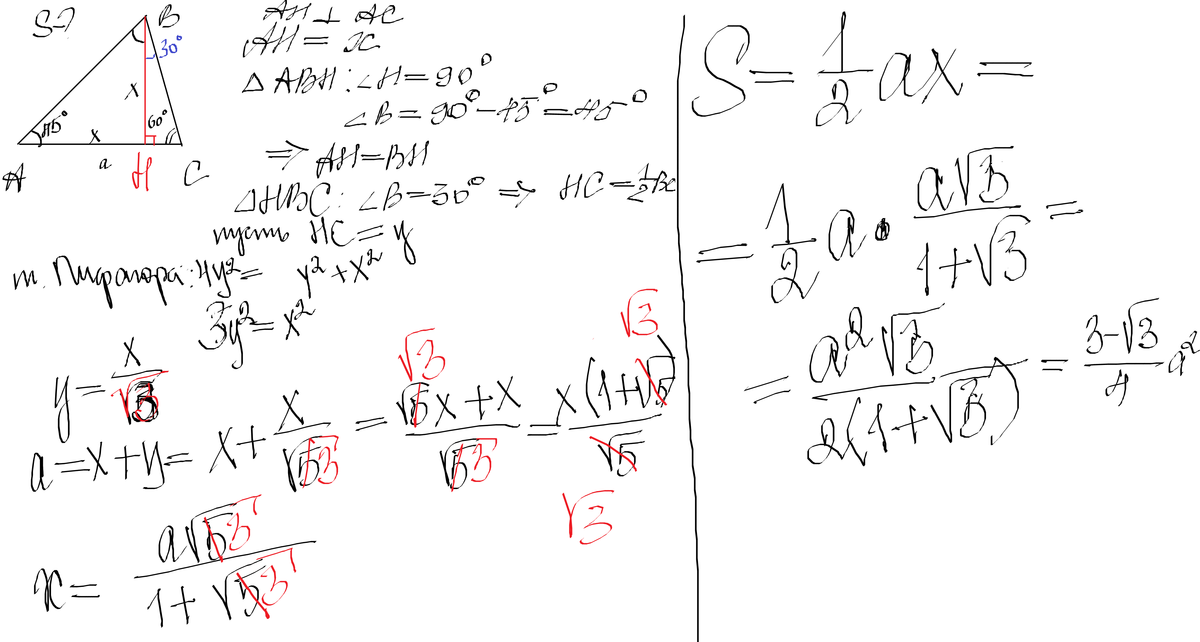 S-?
B
30°
x
45°
60°
x
a
A
H
C
AH ⊥ AC
AH = x
△ ABH : ∠H = 90°
∠B = 90° - 45° = 45°
=> AH = BH
△HBC : ∠B = 30° => HC = 1/2 BC
пусть HC = y
т. Пифагора: 4y² = y² + x²
3y² = x²
y = x/√3
a = x + y = x + x/√3 = (√3x + x)/√3 = x(1+√3)/√3
x = a√3/(1+√3)
S = 1/2 ax =
= 1/2 a · a√3/(1+√3) =
= a²√3/(2(1+√3)) = (3-√3)/4 a²